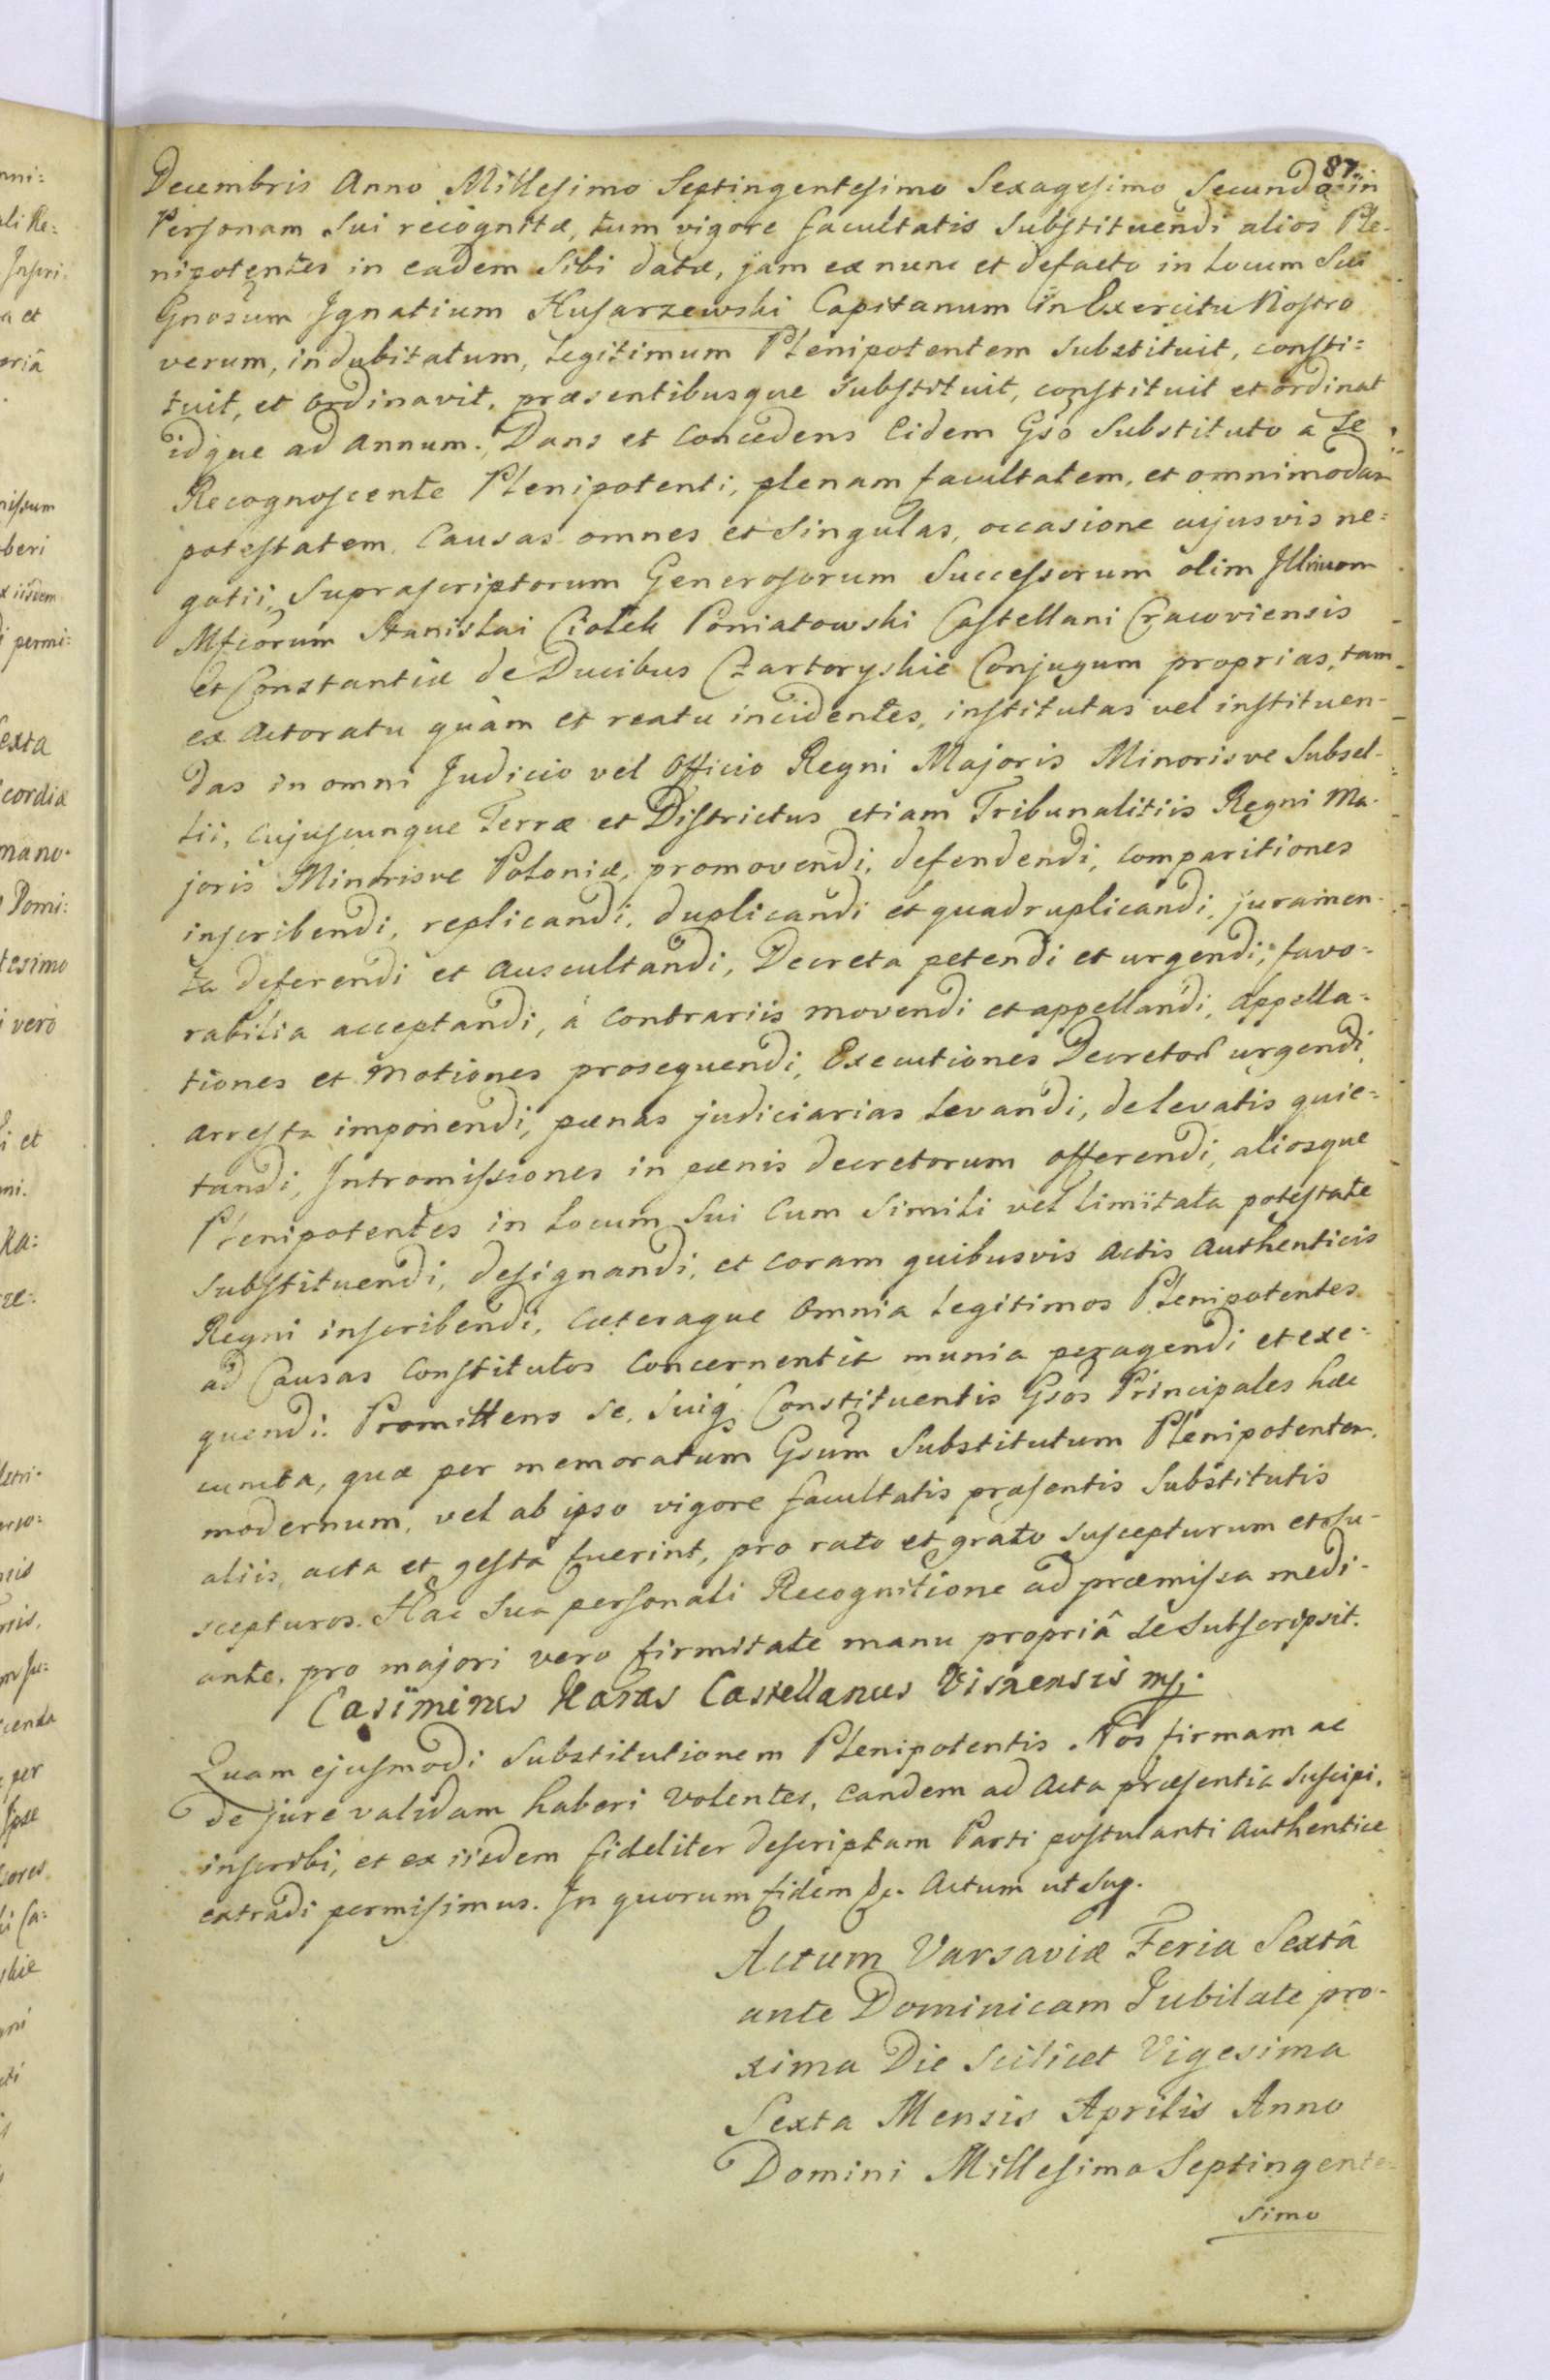 87
Decembris Anno Millesimo Septingentesimo Sexagesimo Secundo in
Personam Sui recognitæ, tum vigore facultatis Substituendi alios Ple-
nipotentes in eadem Sibi datæ, jam ex nunc et defacto in Locum Sui
Gnosum Ignatium Husarzewski Capitanum in Exercitu Nostro
verum, indubitatum, Legitimum Plenipotentem Substituit, consti=
tuit, et Ordinavit, præsentibusque Substituit, constituit et ordinat
idque ad Annum. Dans et Concedens Eidem Gso Substituto à Se
Recognoscente Plenipotenti, plenam facultatem, et omnimodam
potestatem, Causas omnes et Singulas, occasione cujusvis ne=
gotii, Suprascriptorum Generosorum Successorum olim
Mfcorum Stanislai Ciołek Poniatowski Castellani Cracoviensis
et Constantiæ de Ducibus Czartoryskie Conjugum proprias, tam
ex Actoratu quàm et reatu incidentes, institutas vel instituen-
das in omni Judicio vel Officio Regni Majoris Minorisve Subsel-
lii, Cujuscunque Terræ et Districtus etiam Tribunalitiis Regni Ma-
joris Minorisve Poloniæ, promovendi, defendendi, Comparitiones
inscribendi, replicandi, duplicandi et quadruplicandi, juramen-
ta deferendi et Auscultandi, Decreta petendi et urgendi, favo=
rabilia acceptandi, à Contrariis movendi et appellandi, Appella=
tiones et Motiones prosequendi, Executiones Decretor urgendi,
Arresta imponendi, pænas judiciarias Levandi, de levatis quie=
tandi, Intromissiones in pænis decretorum offerendi, aliosque
Plenipotentes in Locum Sui Cum Simili vel limitata potestate
Substituendi, designandi, et Coram quibusvis Actis Authenticis
Regni inscribendi, Cæteraque Omnia Legitimos Plenipotentes
ad Causas Constitutos Concernentia munia peragendi et exe=
quendi. Promittens Se, Suiq Constituentis Gsos Principales hæc
cuncta, quæ per memoratum Gsum Substitutum Plenipotentem
modernum, vel ab ipso vigore facultatis præsentis Substitutis
aliis, acta et gesta fuerint, pro rato et grato Suscepturum et su-
scepturos. Hac Sua personali Recognitione ad præmissa medi-
ante, pro majori vero firmitate manu propriâ Se Subscripsit.
Casimirus Karas Castellanus Visnensis mp.
Quam ejusmodi Substitutionem Plenipotentis Nos firmam ac
de jure validam haberi Volentes, eandem ad Acta præsentia Suscipi,
inscribi, et ex iisdem fideliter descriptam Parti postulanti Authentice
extradi permisimus. In quorum fidem &. Actum ut Sup.
Actum Varsaviæ Feria Sextâ
ante Dominicam Jubilate pro-
xima Die Scilicet Vigesima
Sexta Mensis Aprilis Anno
Domini Millesimo Septingente-
simo